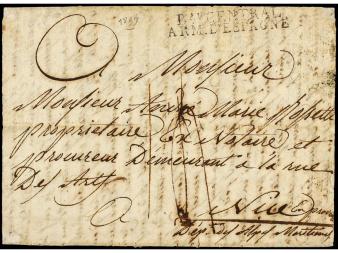 1809
Bᵁ CENTRAL
ARM. D'ESPAGNE
Monsieur
Monsieur Marie
propriétaire Ex Notaire et
procureur Demeurant à la rue
Des Arts
A Nice
Dépt. des Alpes Maritimes